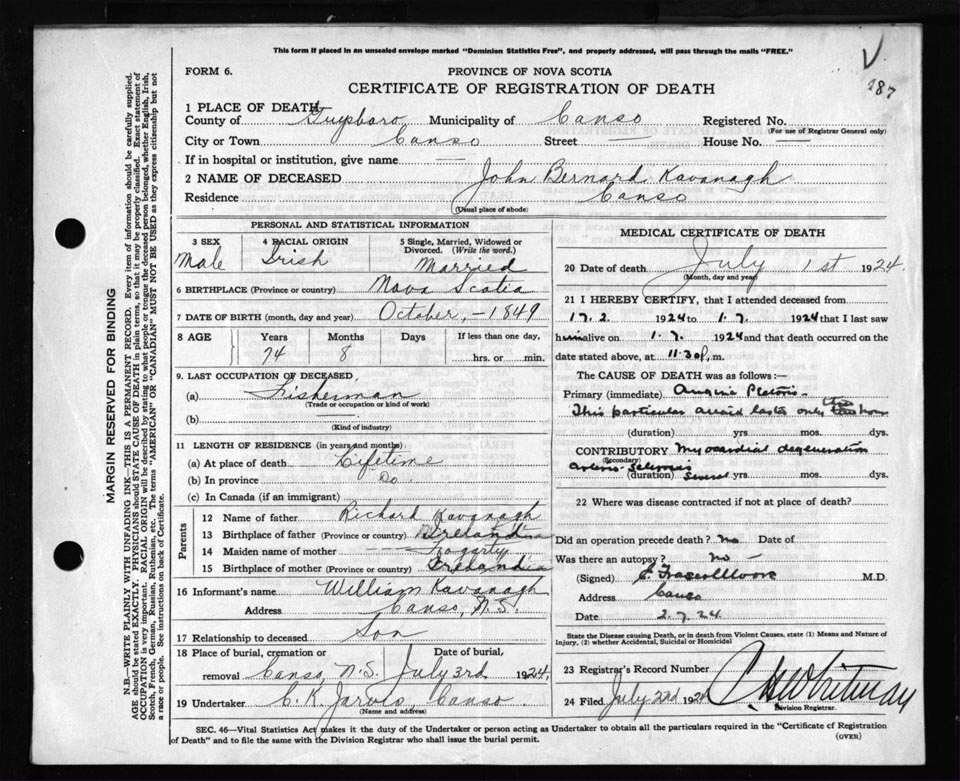 This form if placed in an unsealed envelope marked "Dominion Statistics Free", and properly addressed, will pass through the mails "FREE."
V
187
FORM 6.
PROVINCE OF NOVA SCOTIA
CERTIFICATE OF REGISTRATION OF DEATH
1 PLACE OF DEATH
County of Guysboro Municipality of Canso Registered No.
(For use of Registrar General only)
City or Town Canso Street — House No. —
If in hospital or institution, give name —
2 NAME OF DECEASED John Bernard Kavanagh
Residence Canso
(Usual place of abode)
PERSONAL AND STATISTICAL INFORMATION
3 SEX 4 RACIAL ORIGIN 5 Single, Married, Widowed or Divorced. (Write the word.)
Male Irish Married
6 BIRTHPLACE (Province or country) Nova Scotia
7 DATE OF BIRTH (month, day and year) October, - 1849
8 AGE Years Months Days If less than one day,
74 8 hrs. or min.
9. LAST OCCUPATION OF DECEASED
(a) Fisherman
(Trade or occupation or kind of work)
(b) —
(Kind of industry)
11 LENGTH OF RESIDENCE (in years and months)
(a) At place of death Lifetime
(b) In province Do.
(c) In Canada (if an immigrant)
Parents
12 Name of father Richard Kavanagh
13 Birthplace of father (Province or country)
14 Maiden name of mother — Fogarty
15 Birthplace of mother (Province or country)
16 Informant's name William Kavanagh
Address Canso, N.S.
17 Relationship to deceased Son
18 Place of burial, cremation or removal Date of burial,
Canso, N.S. July 3rd 1924.
19 Undertaker C. K. Jarvis, Canso
(Name and address)
MEDICAL CERTIFICATE OF DEATH
20 Date of death July 1st 1924.
(Month, day and year)
21 I HEREBY CERTIFY, that I attended deceased from
17.2. 1924 to 1.7. 1924 that I last saw
him alive on 1.7. 1924 and that death occurred on the
date stated above, at 11.30 p.m.
The CAUSE OF DEATH was as follows:—
Primary (immediate) Angina Pectoris -
This particular lasted only hour
(duration) yrs. mos. dys.
CONTRIBUTORY Myocardial degeneration
(Secondary)
Arterio-Sclerosis
(duration) Several yrs. mos. dys.
22 Where was disease contracted if not at place of death?
Did an operation precede death? No Date of
Was there an autopsy? No -
(Signed) M.D.
Address Canso
Date 2.7.24.
State the Disease causing Death, or in death from Violent Causes, state (1) Means and Nature of
Injury, (2) whether Accidental, Suicidal or Homicidal
23 Registrar's Record Number
24 Filed July 2nd 1924 C. H. Whitman
Division Registrar.
SEC. 46—Vital Statistics Act makes it the duty of the Undertaker or person acting as Undertaker to obtain all the particulars required in the "Certificate of Registration
of Death" and to file the same with the Division Registrar who shall issue the burial permit.
(OVER)
MARGIN RESERVED FOR BINDING
N.B.—WRITE PLAINLY WITH UNFADING INK—THIS IS A PERMANENT RECORD. Every item of information should be carefully supplied.
AGE should be stated EXACTLY. PHYSICIANS should STATE CAUSE OF DEATH in plain terms, so that it may be properly classified. Exact statement of
OCCUPATION is very important. RACIAL ORIGIN will be described by stating to what people or tongue the deceased person belonged, whether English, Irish,
Scotch, French, German, Russian, Ruthenian, etc. The terms "AMERICAN" OR "CANADIAN" MUST NOT BE USED as they express citizenship but not
a race or people. See instructions on back of Certificate.